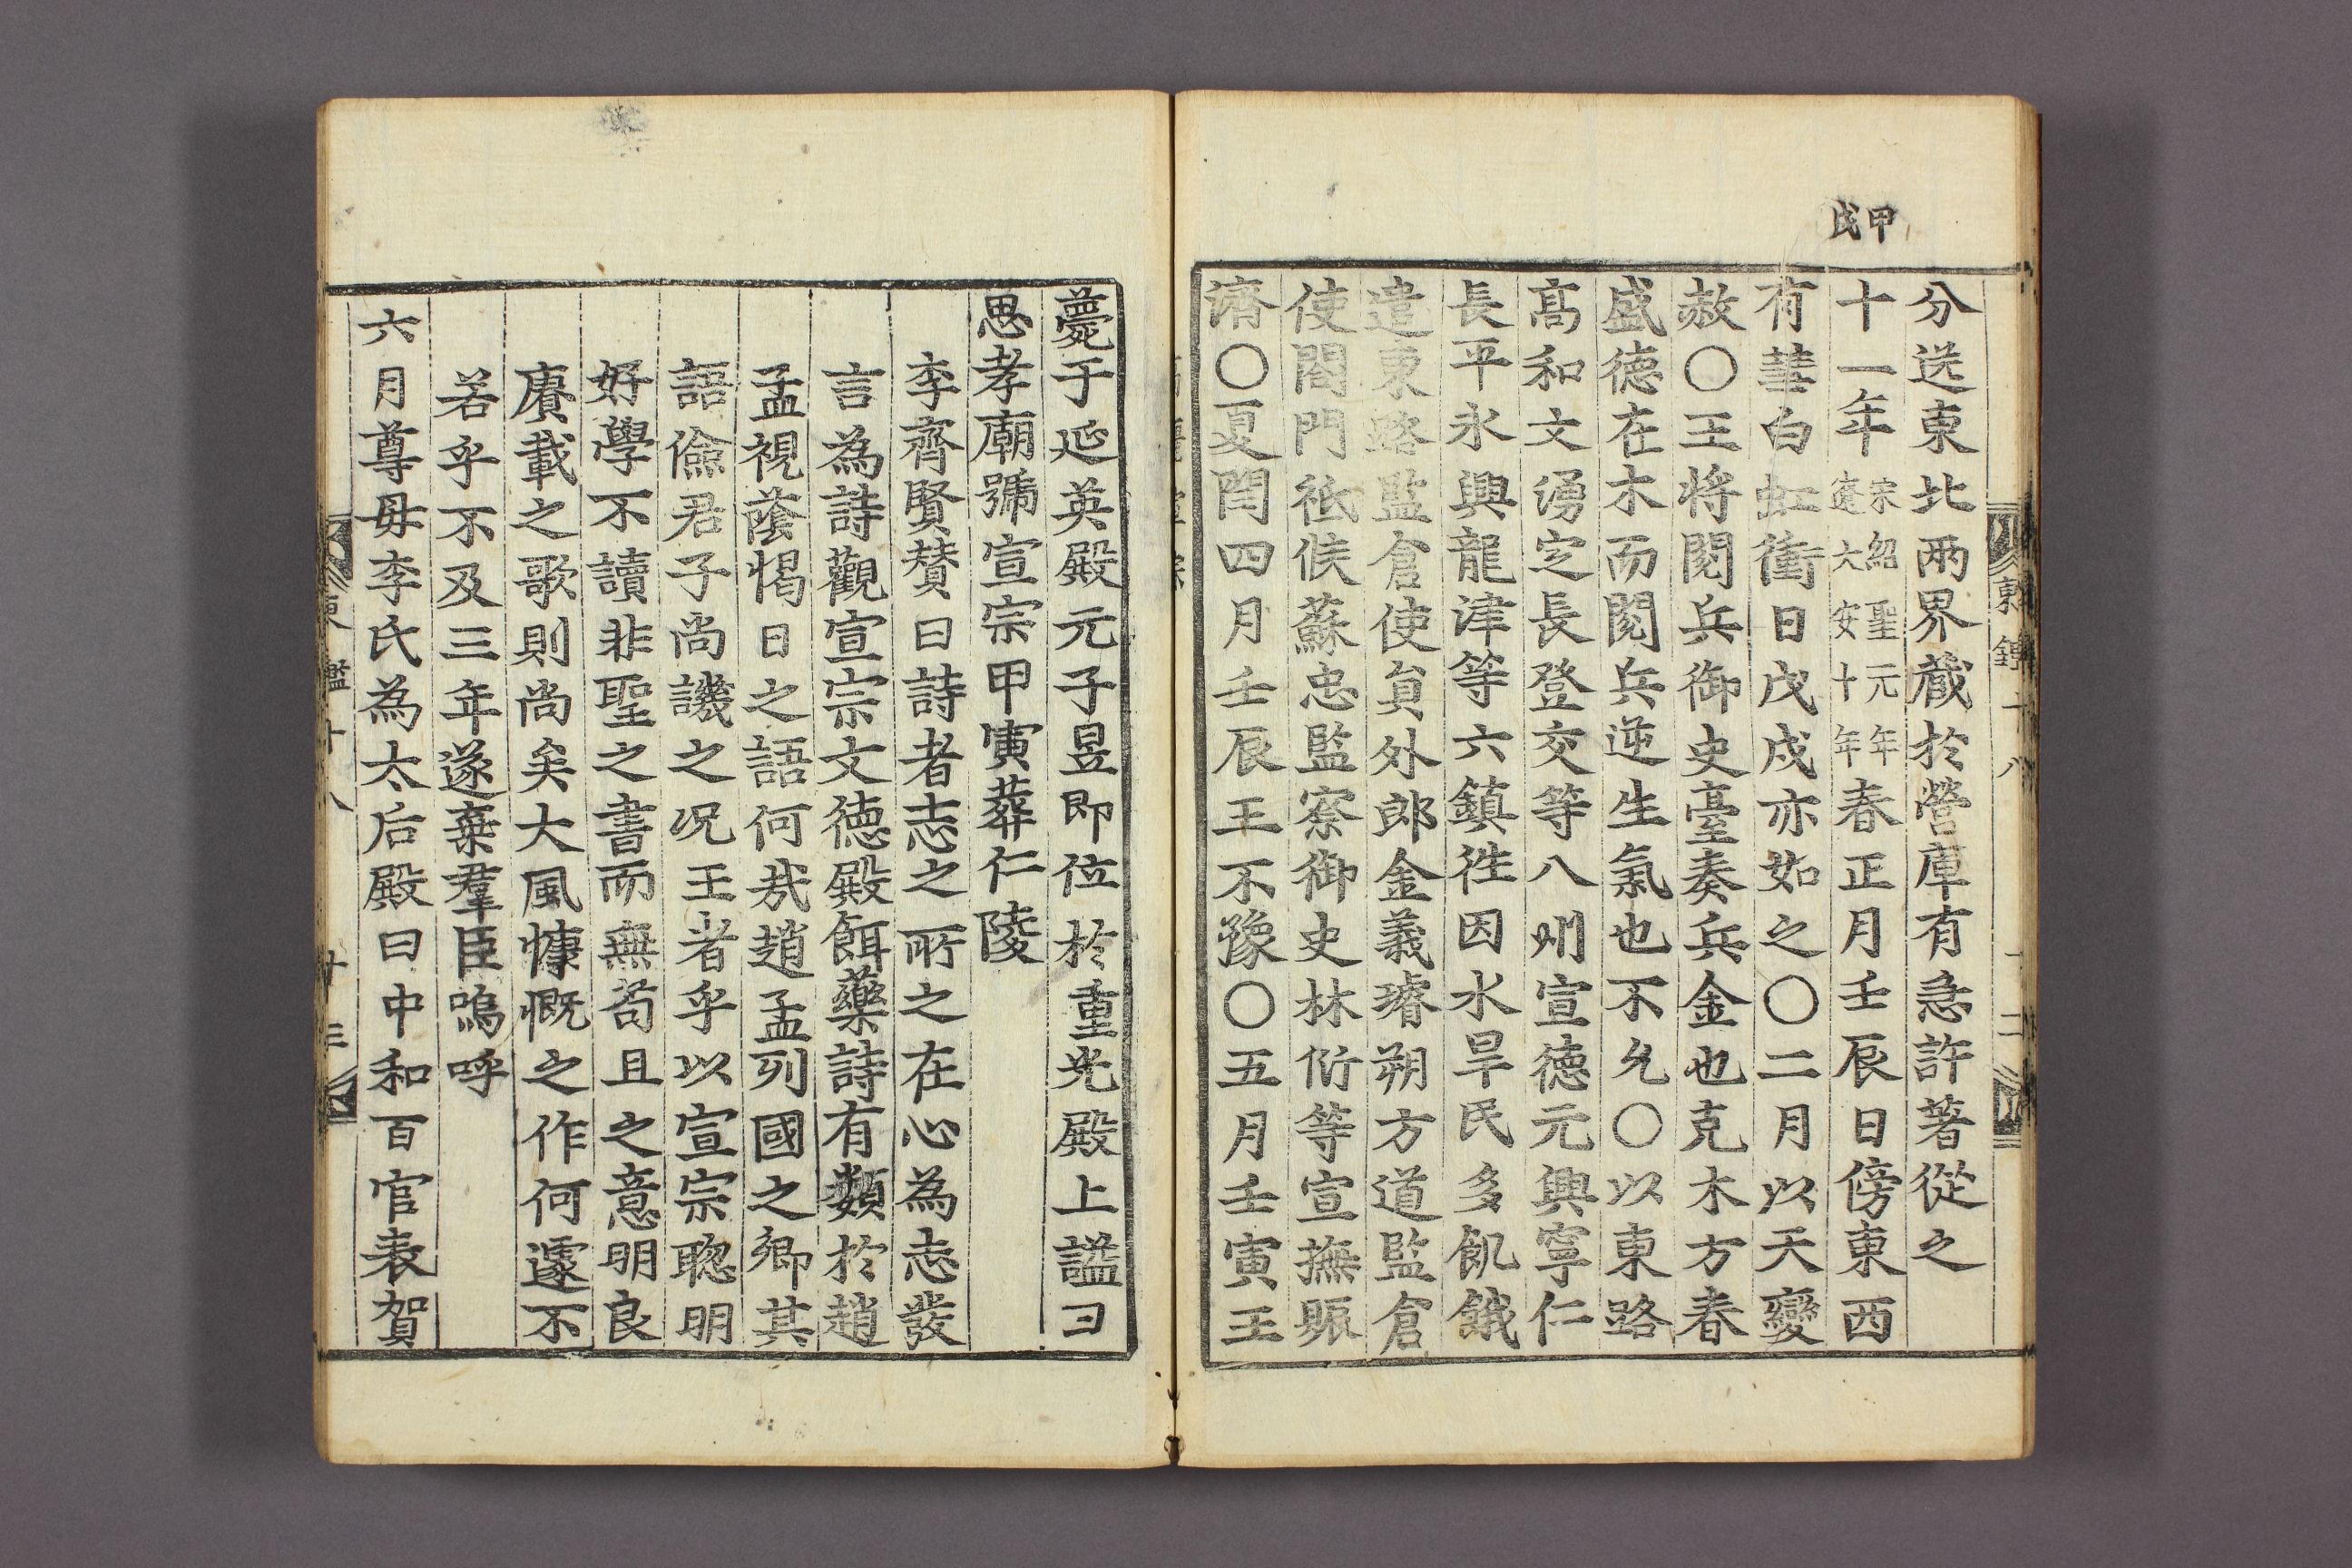 甲戌
分送東北兩界藏於營庫有急許著從之
十一年宋紹聖元年遼大安十年春正月壬辰日傍東西
有暈白虹衝日戊戌亦如之〇二月以天變
赦〇王將閱兵御史臺奏兵金也克木方春
盛德在木而閱兵逆生氣也不允〇以東路
高和文湧定長登交等八州宣德元興寧仁
長平永興龍津等六鎮往因水旱民多飢餓
遣東路監倉使員外郎金義㻇朔方道監倉
使閤門祗候蘇忠監察御史林衍等宣撫賑
濟〇夏閏四月壬辰王不豫〇五月壬寅王
薨于延英殿元子昱即位於重光殿上謚曰
思孝廟號宣宗甲寅葬仁陵
李齊賢贊曰詩者志之所之在心為志發
言為詩觀宣宗文德殿餌藥詩有類於趙
孟視蔭愒日之語何哉趙孟列國之卿其
語儉君子尚譏之况王者乎以宣宗聰明
好學不讀非聖之書而無苟且之意明良
賡載之歌則尚矣大風慷慨之作何遽不
若乎不及三年遂棄羣臣嗚呼
六月尊母李氏為太后殿曰中和百官表賀
東鑑十八
廿三